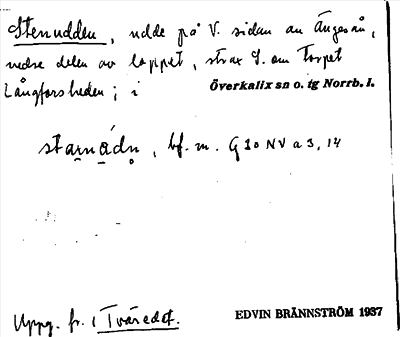 Stenudden, udde på V. sidan av Ängesån,
nedre delen av loppet, strax S. om Torpet
Långforsheden; i Överkalix sn o. tg Norrb. l.
starnådn, bf. m. G 10 NV a 3, 14
Uppg. fr. i Tväredet.
EDVIN BRÄNNSTRÖM 1937